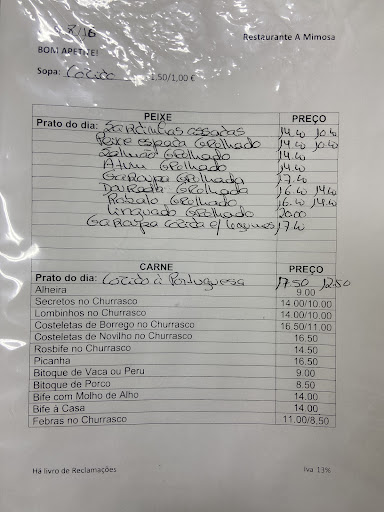 8/16 Restaurante A Mimosa
BOM APETITE!
Sopa: Cozido 1,50/1,00 €
PEIXE PREÇO
Prato do dia: Sardinhas assadas 14.40 10.40
Peixe espada Grelhado 14.40 10.40
Salmão Grelhado 14.40
Atum Grelhado 14.40
Garoupa Grelhada 17.40
Dourada Grelhada 16.40 14.40
Robalo Grelhado 16.40 14.40
Linguado Grelhado 20.00
Garoupa cozida c/ legumes 17.40
CARNE PREÇO
Prato do dia: Cozido à Portuguesa 17.50 12.50
Alheira 9.00
Secretos no Churrasco 14.00/10.00
Lombinhos no Churrasco 14.00/10.00
Costeletas de Borrego no Churrasco 16.50/11.00
Costeletas de Novilho no Churrasco 16.50
Rosbife no Churrasco 14.50
Picanha 16.50
Bitoque de Vaca ou Peru 9.00
Bitoque de Porco 8.50
Bife com Molho de Alho 14.00
Bife à Casa 14.00
Febras no Churrasco 11.00/8.50
Há livro de Reclamações Iva 13%